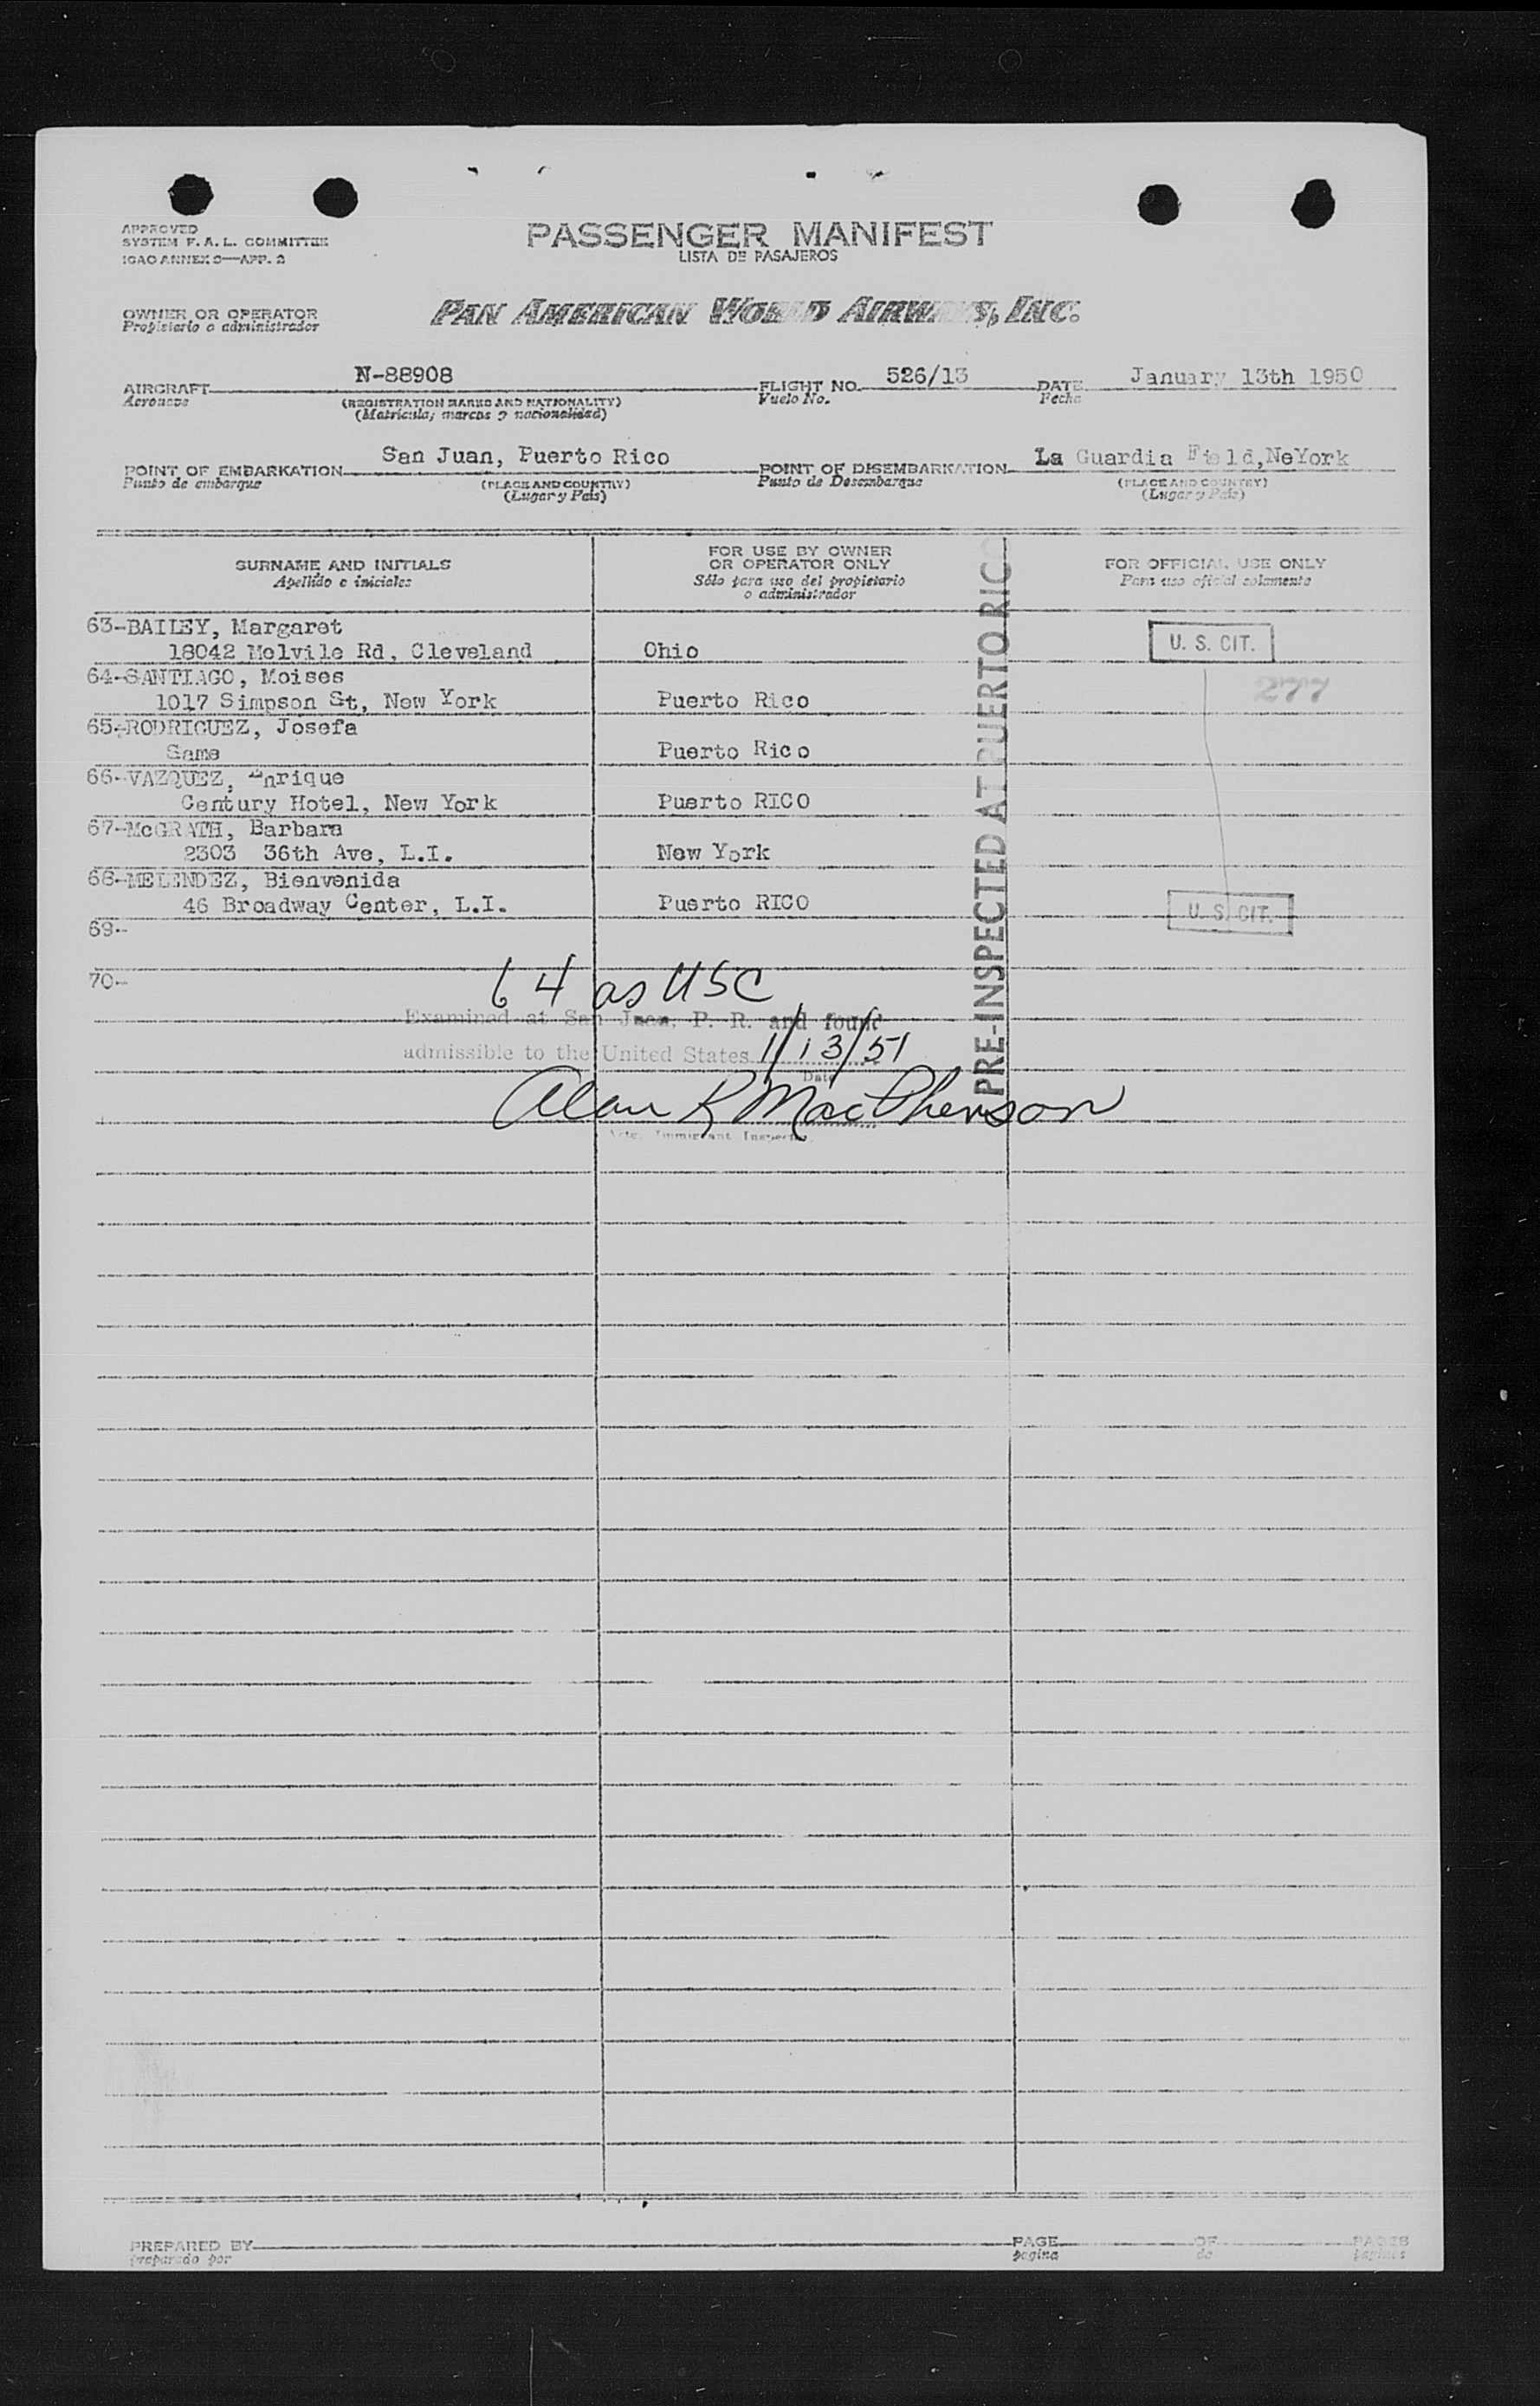 APPROVED
SYSTEM F. A. L. COMMITTEE
ICAO ANNEX 9—APP. 2
PASSENGER MANIFEST
LISTA DE PASAJEROS
OWNER OR OPERATOR
Propietario o administrador
PAN AMERICAN WORLD AIRWAYS, INC.
AIRCRAFT N-88908 FLIGHT NO. 526/13 DATE January 13th 1950
Aeronave (REGISTRATION MARKS AND NATIONALITY) Vuelo No. Fecha
(Matricula, marcas y nacionalidad)
POINT OF EMBARKATION San Juan, Puerto Rico POINT OF DISEMBARKATION La Guardia Field,NeYork
Punto de embarque (PLACE AND COUNTRY) Punto de Desembarque (PLACE AND COUNTRY)
(Lugar y Pais) (Lugar y Pais)
SURNAME AND INITIALS
Apellido e iniciales
FOR USE BY OWNER
OR OPERATOR ONLY
Sólo para uso del propietario
o administrador
FOR OFFICIAL USE ONLY
Para uso oficial solamente
63-BAILEY, Margaret
18042 Melvile Rd, Cleveland Ohio U. S. CIT.
64-SANTIAGO, Moises 277
1017 Simpson St, New York Puerto Rico
65-RODRIGUEZ, Josefa
Same Puerto Rico
66-VAZQUEZ, Enrique
Century Hotel, New York Puerto RICO
67-McGRATH, Barbara
2303 36th Ave, L.I. New York
68-MELENDEZ, Bienvenida
46 Broadway Center, L.I. Puerto RICO U. S. CIT.
69-
70-
PRE-INSPECTED AT PUERTO RICO
64 as USC
Examined at San Juan, P. R. and found
admissible to the United States 1/13/51
Date
Alan R MacPherson
Immigrant Inspector
PREPARED BY PAGE OF PAGES
preparado por pagina de paginas